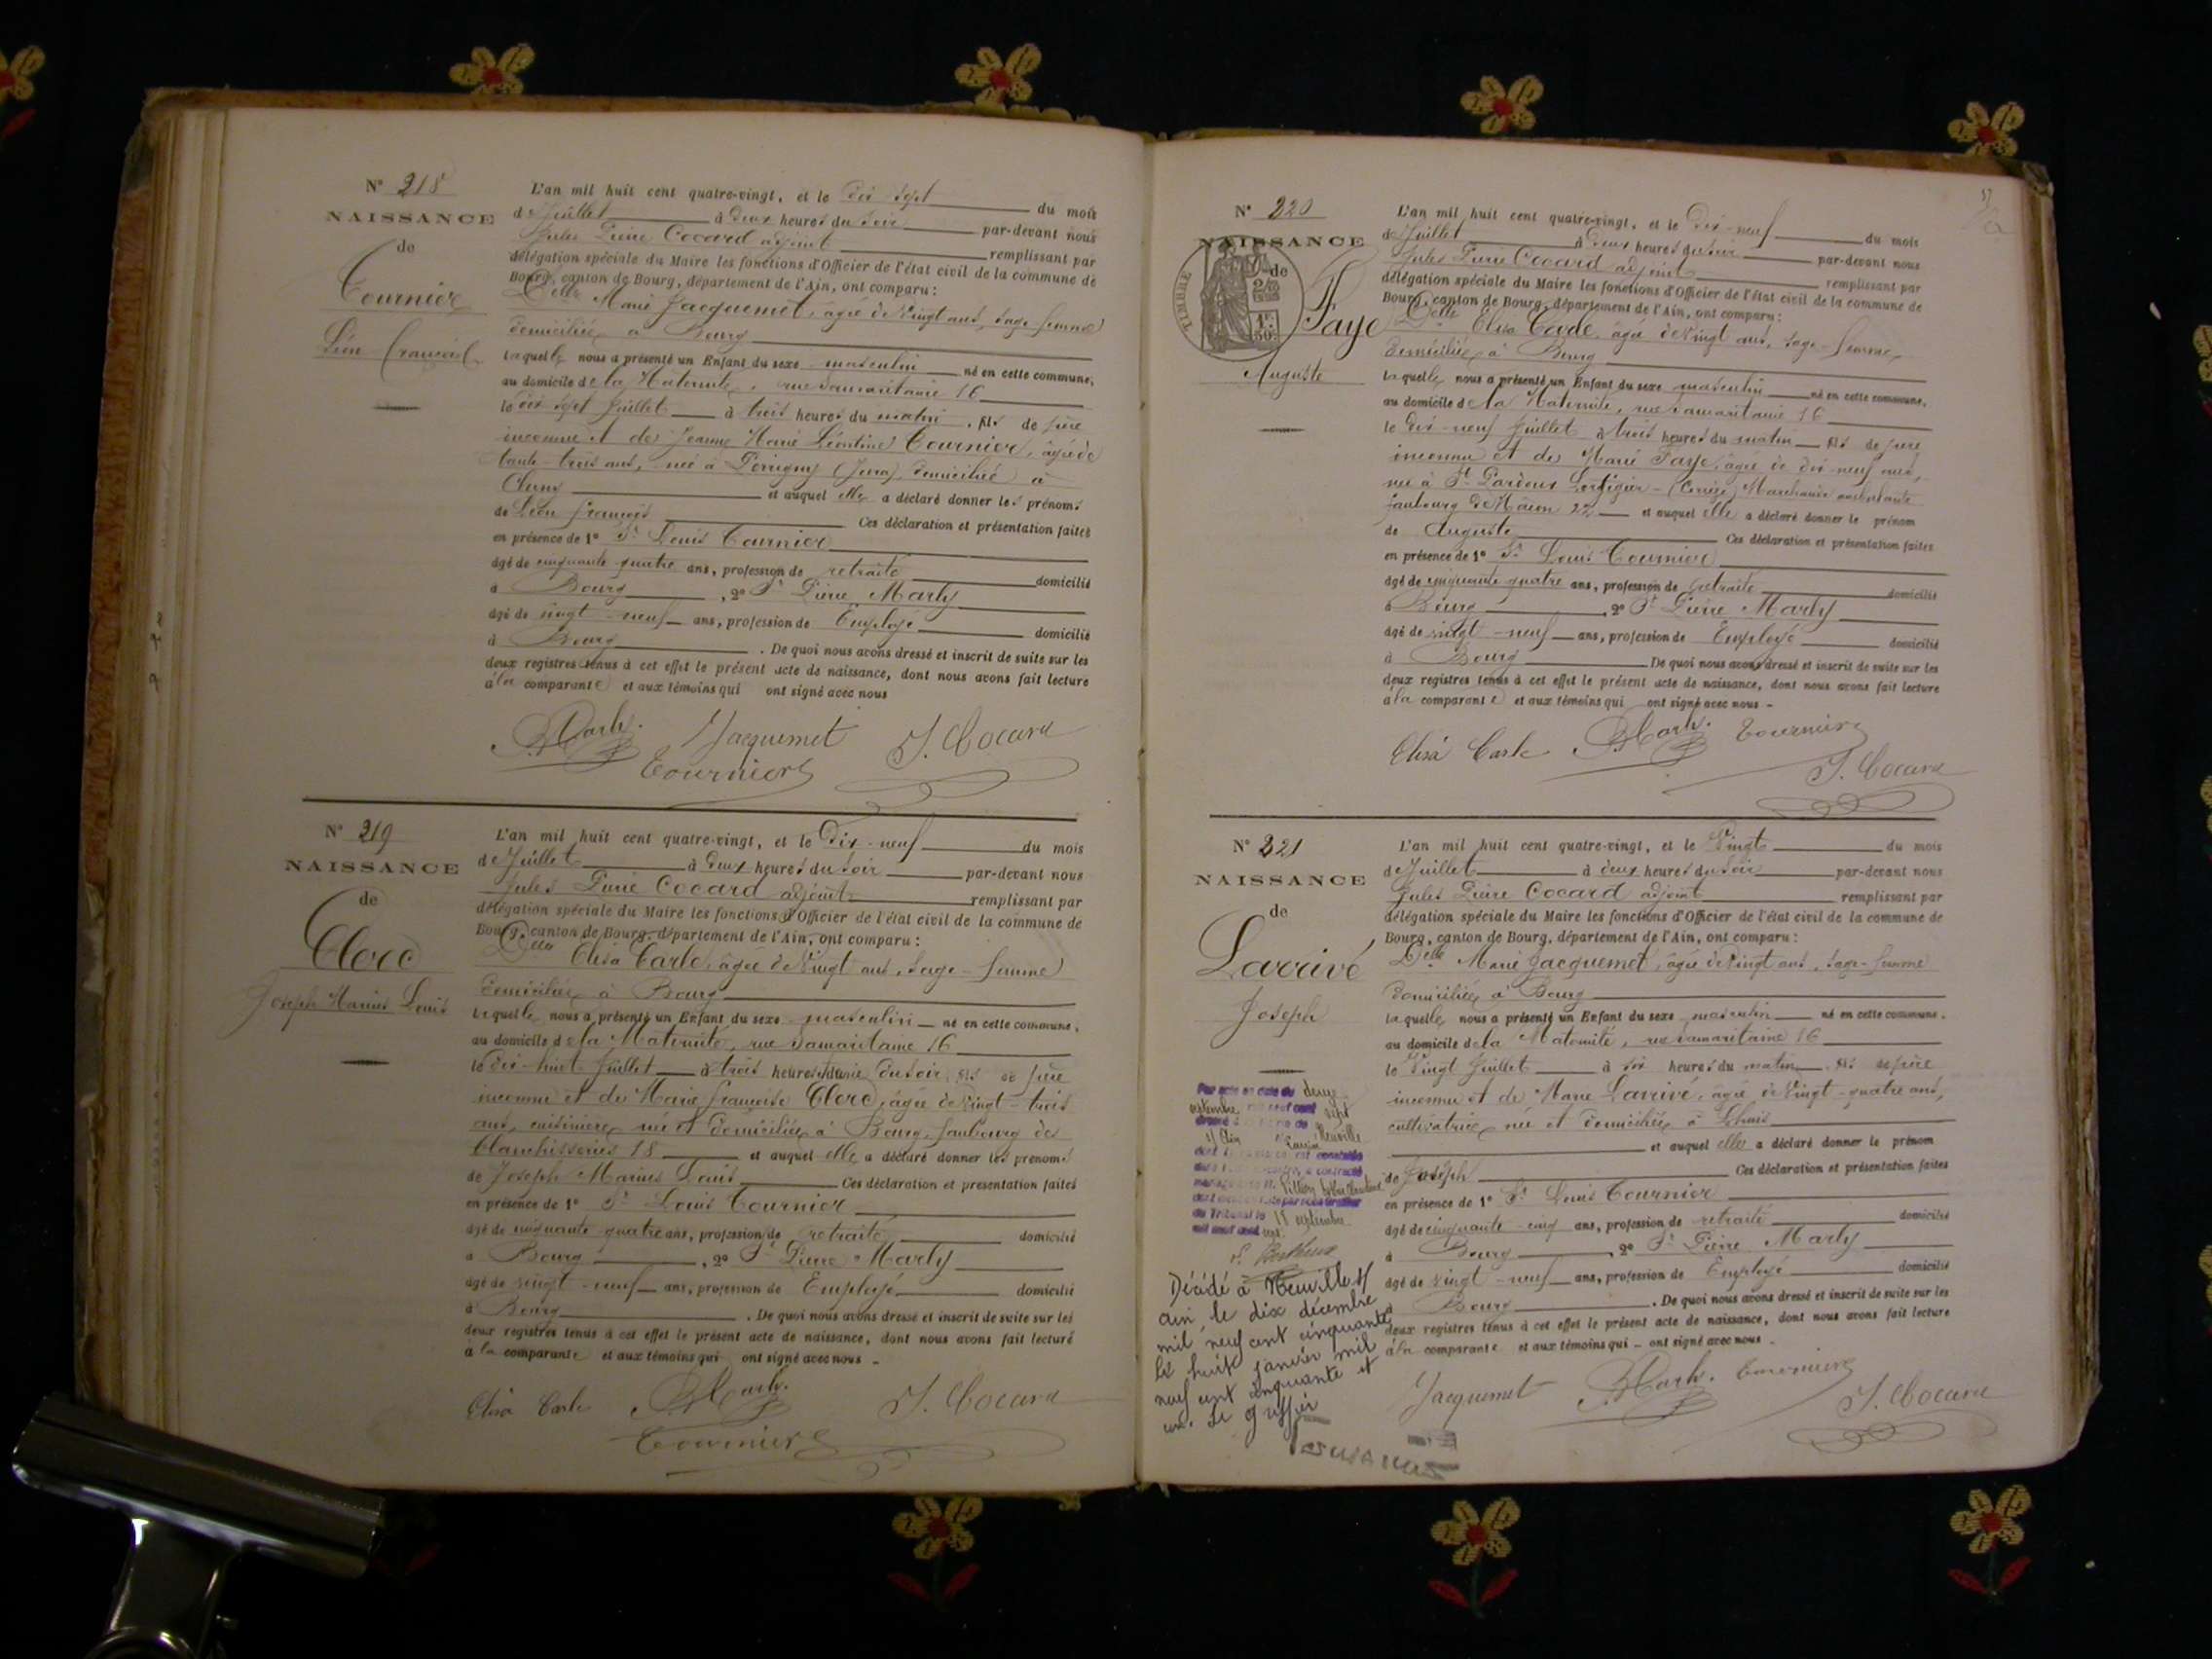 N° 218
NAISSANCE
de
Tournier
Léon François
L'an mil huit cent quatre-vingt, et le dix-sept du mois
de Juillet à deux heures du soir par-devant nous
Jules Pierre Cocard adjoint remplissant par
délégation spéciale du Maire les fonctions d'Officier de l'état civil de la commune de
Bourg, canton de Bourg, département de l'Ain, ont comparu :
Delle Marie Jacquemet, âgée de Vingt ans, sage-femme
domiciliée à Bourg
laquelle nous a présenté un Enfant du sexe masculin né en cette commune,
au domicile de la Maternité, rue Samaritaine 16
le dix sept Juillet à trois heures du matin, fils de père
inconnu et de Jeanne Marie Léontine Tournier, âgée de
trente-trois ans, née à Perrigny (Jura), domiciliée à
et auquel elle a déclaré donner les prénoms
de Léon François Ces déclaration et présentation faites
en présence de 1° Sr Louis Tournier
âgé de cinquante quatre ans, profession de retraité domicilié
à Bourg, 2° Sr Pierre Marly
âgé de vingt-neuf ans, profession de Employé domicilié
à Bourg. De quoi nous avons dressé et inscrit de suite sur les
deux registres tenus à cet effet le présent acte de naissance, dont nous avons fait lecture
à la comparante et aux témoins qui ont signé avec nous
Jacquemet J. Cocard
Tournier
N° 219
NAISSANCE
de
Clerc
Joseph Marius Louis
L'an mil huit cent quatre-vingt, et le Dix-neuf du mois
de Juillet à deux heures du soir par-devant nous
Jules Pierre Cocard adjoint remplissant par
délégation spéciale du Maire les fonctions d'Officier de l'état civil de la commune de
Bourg, canton de Bourg, département de l'Ain, ont comparu :
Delle Elisa Carle, âgée de Vingt ans, sage-femme
domiciliée à Bourg
laquelle nous a présenté un Enfant du sexe masculin né en cette commune,
au domicile de la Maternité, rue Samaritaine 16
le dix-huit Juillet à trois heures demie du soir, fils de père
inconnu et de Marie Françoise Clerc, âgée de Vingt-trois
ans, cuisinière, née et domiciliée à Bourg, faubourg des
Blanchisseries 18 et auquel elle a déclaré donner les prénoms
de Joseph Marius Louis Ces déclaration et présentation faites
en présence de 1° Sr Louis Tournier
âgé de cinquante quatre ans, profession de retraité domicilié
à Bourg, 2° Sr Pierre Marly
âgé de vingt-neuf ans, profession de Employé domicilié
à Bourg. De quoi nous avons dressé et inscrit de suite sur les
deux registres tenus à cet effet le présent acte de naissance, dont nous avons fait lecture
à la comparante et aux témoins qui ont signé avec nous
Elisa Carle J. Cocard
Tournier
N° 220
NAISSANCE
de
TIMBRE
Faye
Auguste
L'an mil huit cent quatre-vingt, et le Dix-neuf du mois
de Juillet à deux heures du soir par-devant nous
Jules Pierre Cocard adjoint remplissant par
délégation spéciale du Maire les fonctions d'Officier de l'état civil de la commune de
Bourg, canton de Bourg, département de l'Ain, ont comparu :
Delle Elisa Carle, âgée de Vingt ans, sage-femme,
domiciliée à Bourg
laquelle nous a présenté un Enfant du sexe masculin né en cette commune,
au domicile de la Maternité, rue Samaritaine 16
le dix-neuf Juillet à trois heures du matin fils de père
inconnu et de Marie Faye, âgée de dix-neuf ans,
née à St Pardoux Lortigier (Corrèze) Marchande ambulante
faubourg de Mâcon 22 et auquel elle a déclaré donner le prénom
de Auguste Ces déclaration et présentation faites
en présence de 1° Sr Louis Tournier
âgé de cinquante quatre ans, profession de retraité domicilié
à Bourg, 2° Sr Pierre Marly
âgé de vingt-neuf ans, profession de Employé domicilié
à Bourg De quoi nous avons dressé et inscrit de suite sur les
deux registres tenus à cet effet le présent acte de naissance, dont nous avons fait lecture
à la comparante et aux témoins qui ont signé avec nous
Elisa Carle Tournier
J. Cocard
N° 221
NAISSANCE
de
Larrivé
Joseph
L'an mil huit cent quatre-vingt, et le Vingt du mois
de Juillet à deux heures du soir par-devant nous
Jules Pierre Cocard adjoint remplissant par
délégation spéciale du Maire les fonctions d'Officier de l'état civil de la commune de
Bourg, canton de Bourg, département de l'Ain, ont comparu :
Delle Marie Jacquemet, âgée de Vingt ans, sage-femme
domiciliée à Bourg
laquelle nous a présenté un Enfant du sexe masculin né en cette commune,
au domicile de la Maternité, rue Samaritaine 16
le Vingt Juillet à six heures du matin, fils de père
inconnu et de Marie Larrivé, âgée de Vingt-quatre ans,
cultivatrice, née et domiciliée à Lhuis
et auquel elle a déclaré donner le prénom
de Joseph Ces déclaration et présentation faites
en présence de 1° Sr Louis Tournier
âgé de cinquante-cinq ans, profession de retraité domicilié
à Bourg, 2° Sr Pierre Marly
âgé de Vingt-neuf ans, profession de Employé domicilié
à Bourg. De quoi nous avons dressé et inscrit de suite sur les
deux registres tenus à cet effet le présent acte de naissance, dont nous avons fait lecture
à la comparante et aux témoins qui ont signé avec nous
Jacquemet Tournier
J. Cocard
Décédé à Neuville s/
ain, le dix décembre
mil neuf cent cinquante
le huit janvier mil
neuf cent cinquante et
un. Le greffier